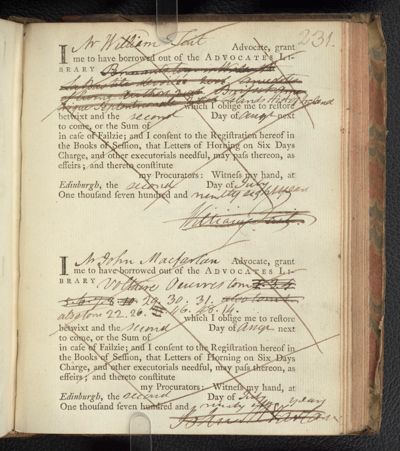 231.
I Mr William Tait Advocate, grant
me to have borrowed out of the ADVOCATES LI-
BRARY
which I oblige me to restore
betwixt and the second Day of Augt next
to come, or the Sum of
in case of Failzie; and I consent to the Registration hereof in
the Books of Session, that Letters of Horning on Six Days
Charge, and other executorials needful, may pass thereon, as
effeirs; and thereto constitute
my Procurators: Witness my hand, at
Edinburgh, the second Day of July
One thousand seven hundred and ninety
William Tait
I Mr John Macfarlan Advocate, grant
me to have borrowed out of the ADVOCATES LI-
BRARY Voltaire Oeuvres tom
29. 30. 31.
also tom 22. 26. 46. 48. 14.
which I oblige me to restore
betwixt and the second Day of Augt next
to come, or the Sum of
in case of Failzie; and I consent to the Registration hereof in
the Books of Session, that Letters of Horning on Six Days
Charge, and other executorials needful, may pass thereon, as
effeirs; and thereto constitute
my Procurators: Witness my hand, at
Edinburgh, the second Day of July
One thousand seven hundred and ninety
John Macfarlan